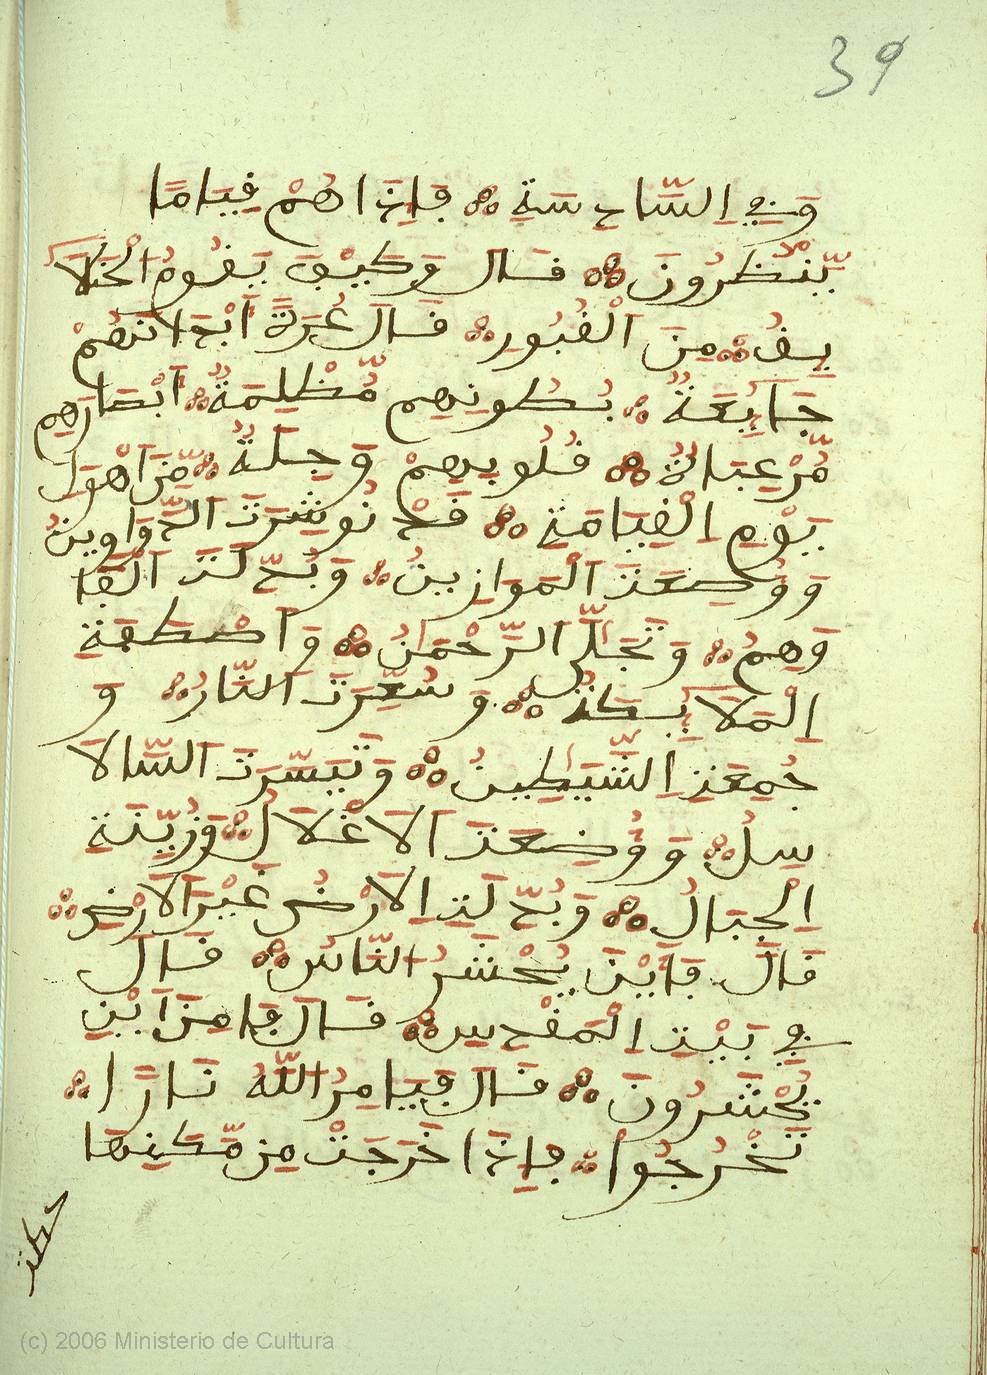 39
وَفِي السَّادِسَةِ ۞ فَإِذَا هُمْ قِيَامًا
يَّنظُرُونَ ۞ قَالَ وَكَيْفَ يَقُومُ الْخَلَا
يِقُ ۞ مِنَ الْقُبُورِ ۞ قَالَ عُرَاةً أَبْدَانُهُمْ
جَايِعَةٌ ۞ بُطُونِهِم مُّظْلِمَةٌ ۞ أَبْصَارُهِم
مُّزْعِبَاةٌ ۞ قُلُوبِهِمْ وَجِلَةٌ ۞ مِّنَ اهْوَلِ
يَوْمِ الْقِيَامَةِ ۞ قَدْ نُوشِرَتِ الدَّوَاوِينُ
وَوُضِعَتِ الْمَوَازِينُ ۞ وَبُدِّلَتِ الْقَا
وَهِمُ ۞ وَتَجَلَّى الرَّحْمَنُ ۞ وَاصْطَفَّةِ
الْمَلَايِكَةُ ۞ وَسُعِّرَتِ النَّارُ ۞ وَ
جُمِعَتِ الشَّيَطِينُ ۞ وَتَيَسَّرَتِ السَّالَا
سِلُ ۞ وَوُضِعَتِ الَاغْلَالُ ۞ وَزُيِّنَةِ
الْجِبَالُ ۞ وَبُدِّلَتِ الَارْضُ غَيْرَ الَارْضِ ۞
قَالَ فَأَيْنَ يُحْشَرُ النَّاسُ ۞ قَالَ
فِي بَيْتِ الْمَقْدِسِ ۞ قَالَ فَا مِنَ أَيْنِ
يُّحْشَرُونَ ۞ قَالَ فَيَامِرُ اللَّهُ نَارًا ۞
تَخْرُجُوا ۞ فَإِذَا خَرَجَتْ مِن مَّكَنِهَا
(c) 2006 Ministerio de Cultura